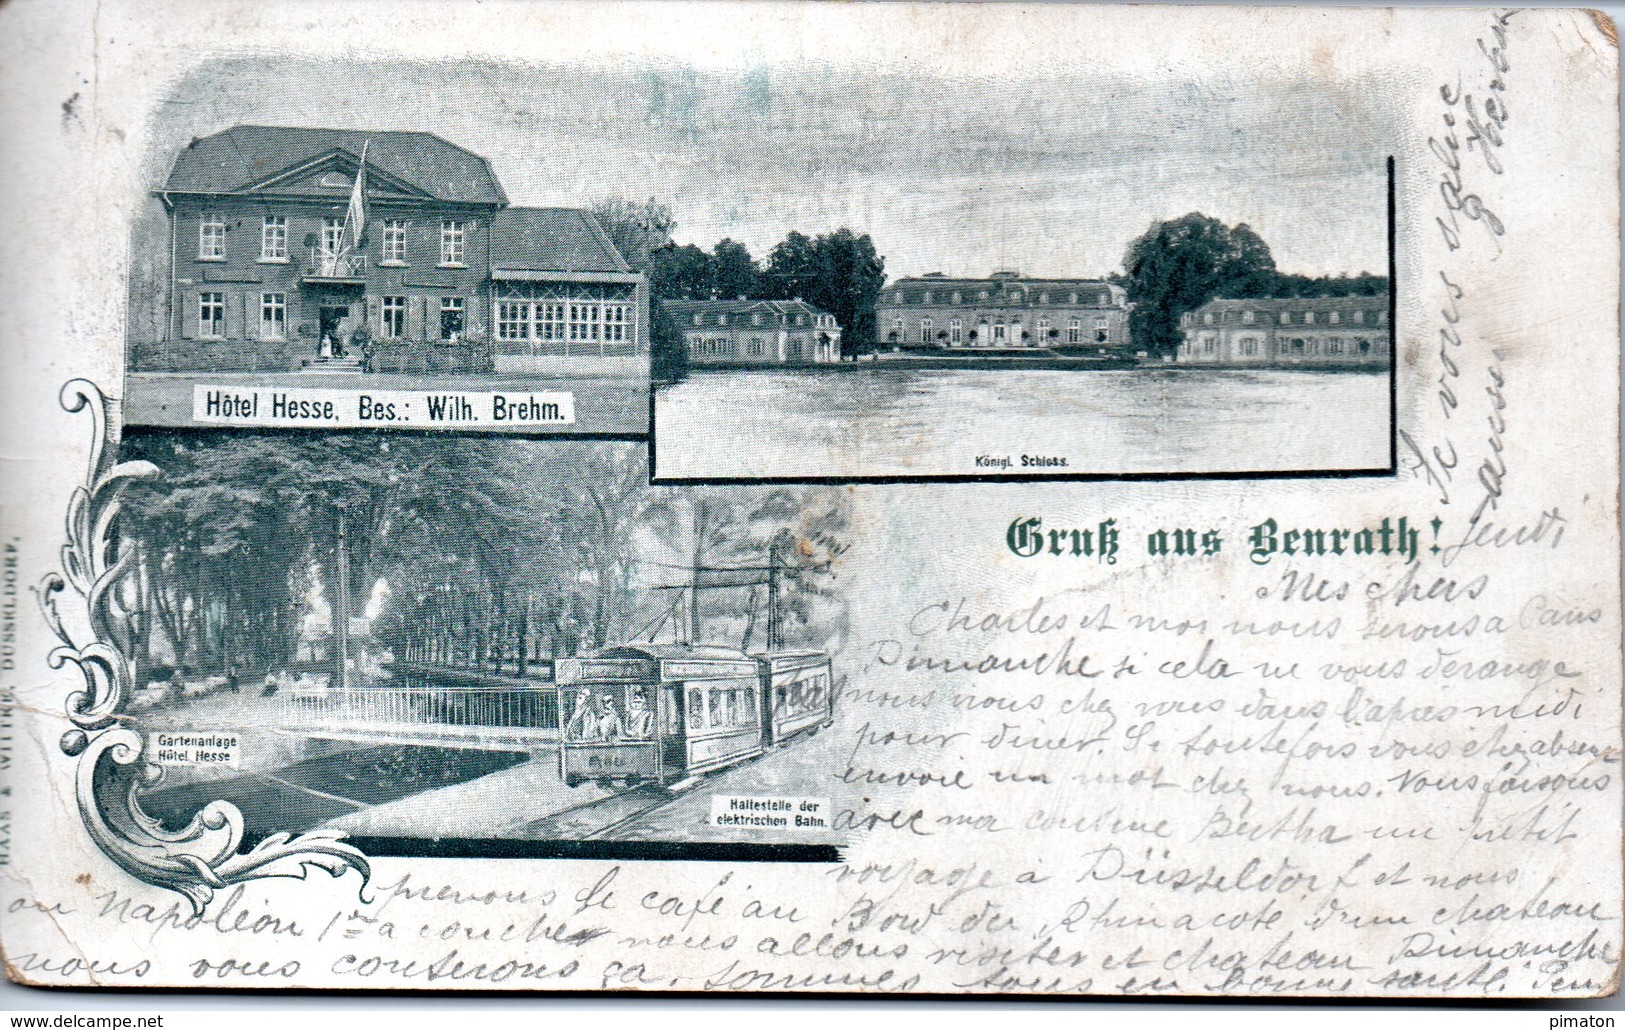 Hôtel Hesse, Bes.: Wilh. Brehm.
Königl. Schloss.
Gartenanlage
Hôtel Hesse
Haltestelle der
elektrischen Bahn.
Gruß aus Benrath!
HAAS & WITTKE, DÜSSELDORF,
Jeudi
Mes chers
Charles et moi nous serons a Paris
Dimanche si cela ne vous derange
nous irons chez vous dans l'après midi
pour diner. Si toutefois vous étiez absent
envoie un mot chez nous. Nous faisons
avec ma cousine Bertha un petit
voyage à Düsseldorf et nous
prenons le café au Bord du Rhin a coté d'un chateau
ou Napoléon 1er a couché nous allons visiter et chateau Dimanche
nous vous conterons ça. sommes tous en bonne santé.
Je vous salue
aussi
G.
delcampe.net
pimaton